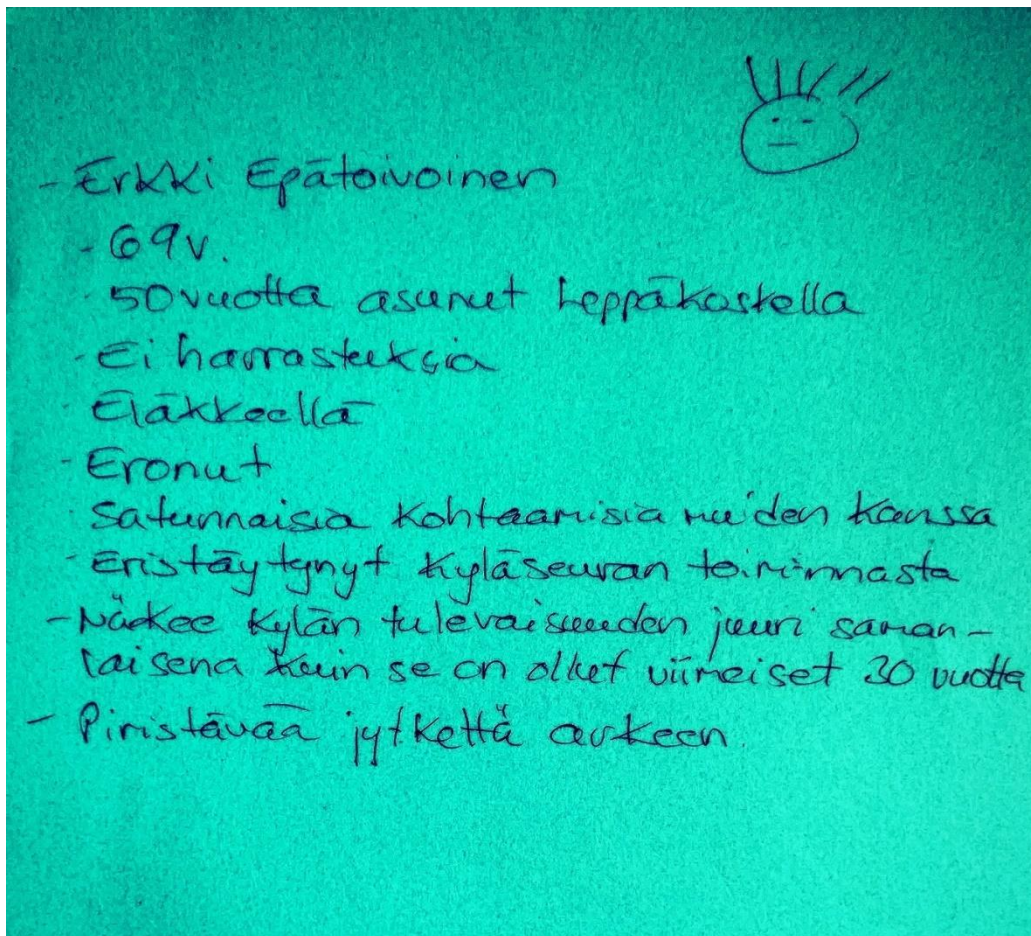 - Erkki Epätoivoinen
- 69v.
- 50 vuotta asunut Leppäkoskella
- Ei harrastuksia
- Eläkkeellä
- Eronut
- Satunnaisia kohtaamisia muiden kanssa
- Eristäytynyt kyläseuran toiminnasta
- Näkee kylän tulevaisuuden juuri saman-
laisena kuin se on ollut viimeiset 30 vuotta
- Piristävää jytkettä arkeen.